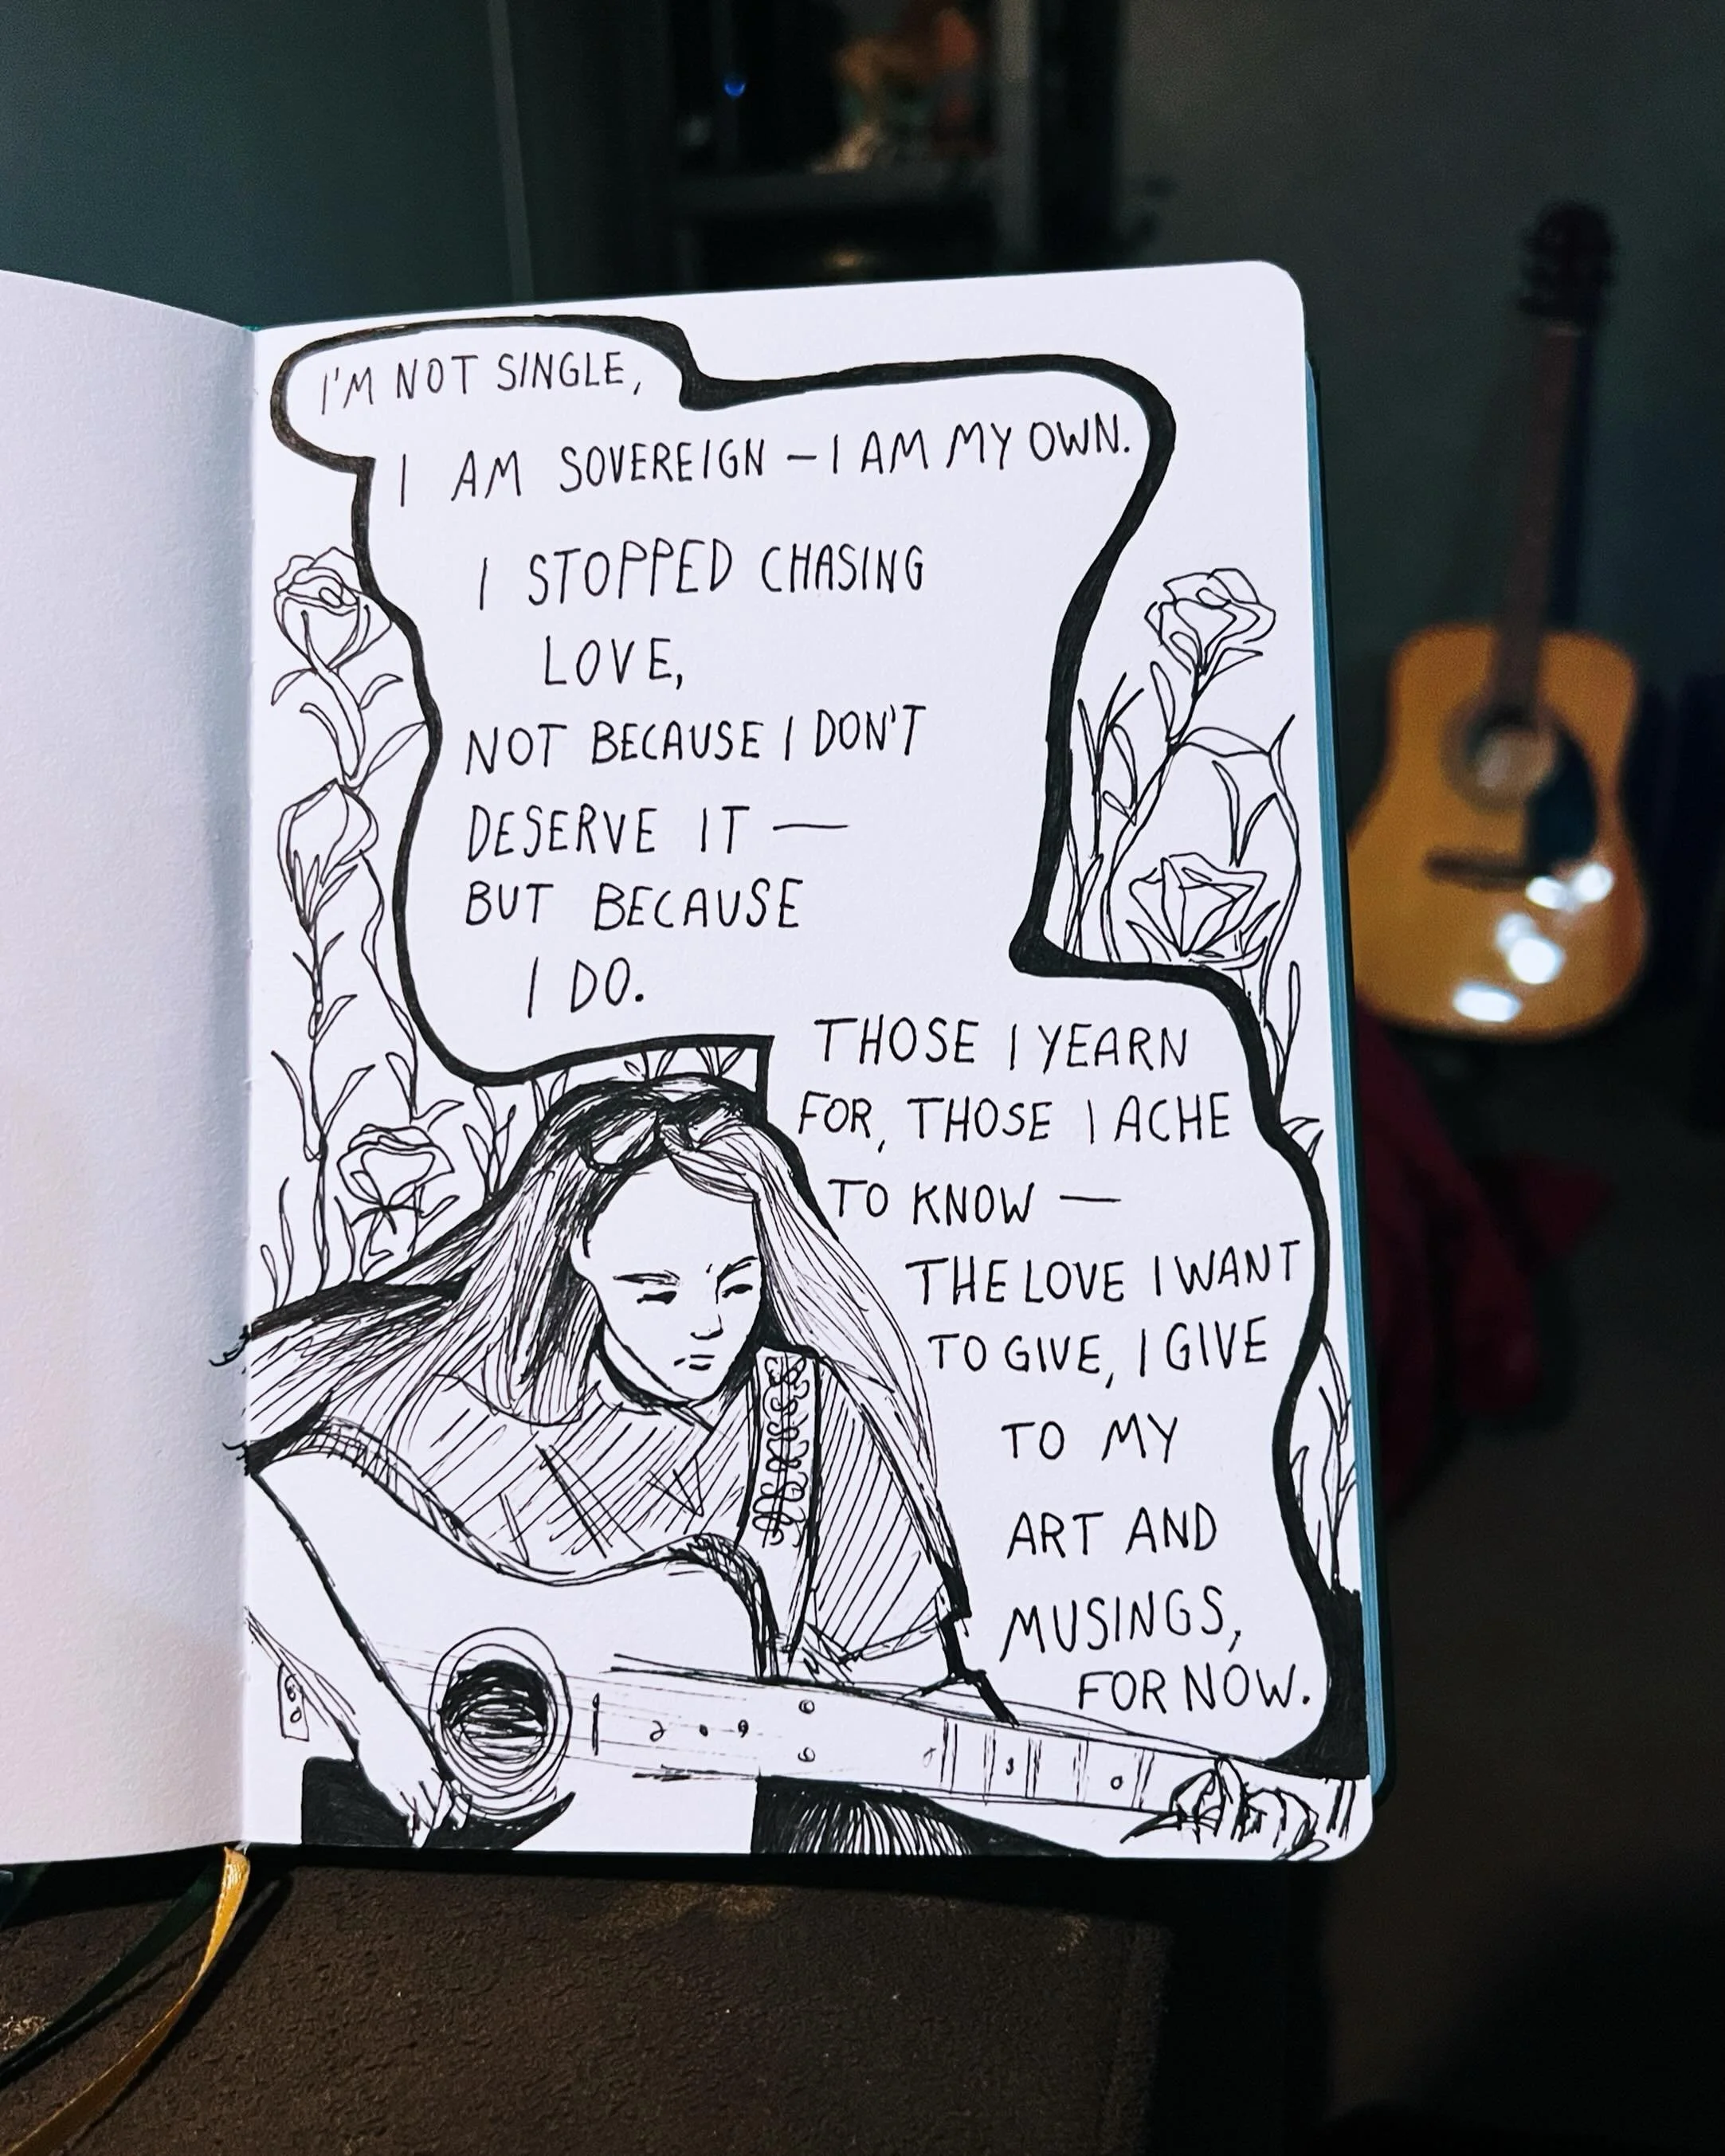 I'M NOT SINGLE,
I AM SOVEREIGN – I AM MY OWN.
I STOPPED CHASING
LOVE,
NOT BECAUSE I DON'T
DESERVE IT —
BUT BECAUSE
I DO.
THOSE I YEARN
FOR, THOSE I ACHE
TO KNOW —
THE LOVE I WANT
TO GIVE, I GIVE
TO MY
ART AND
MUSINGS,
FOR NOW.